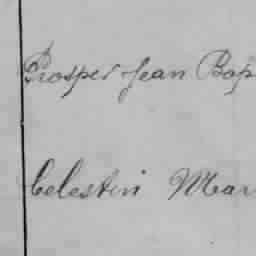 Prosper Jean Bap
Celestin Mar